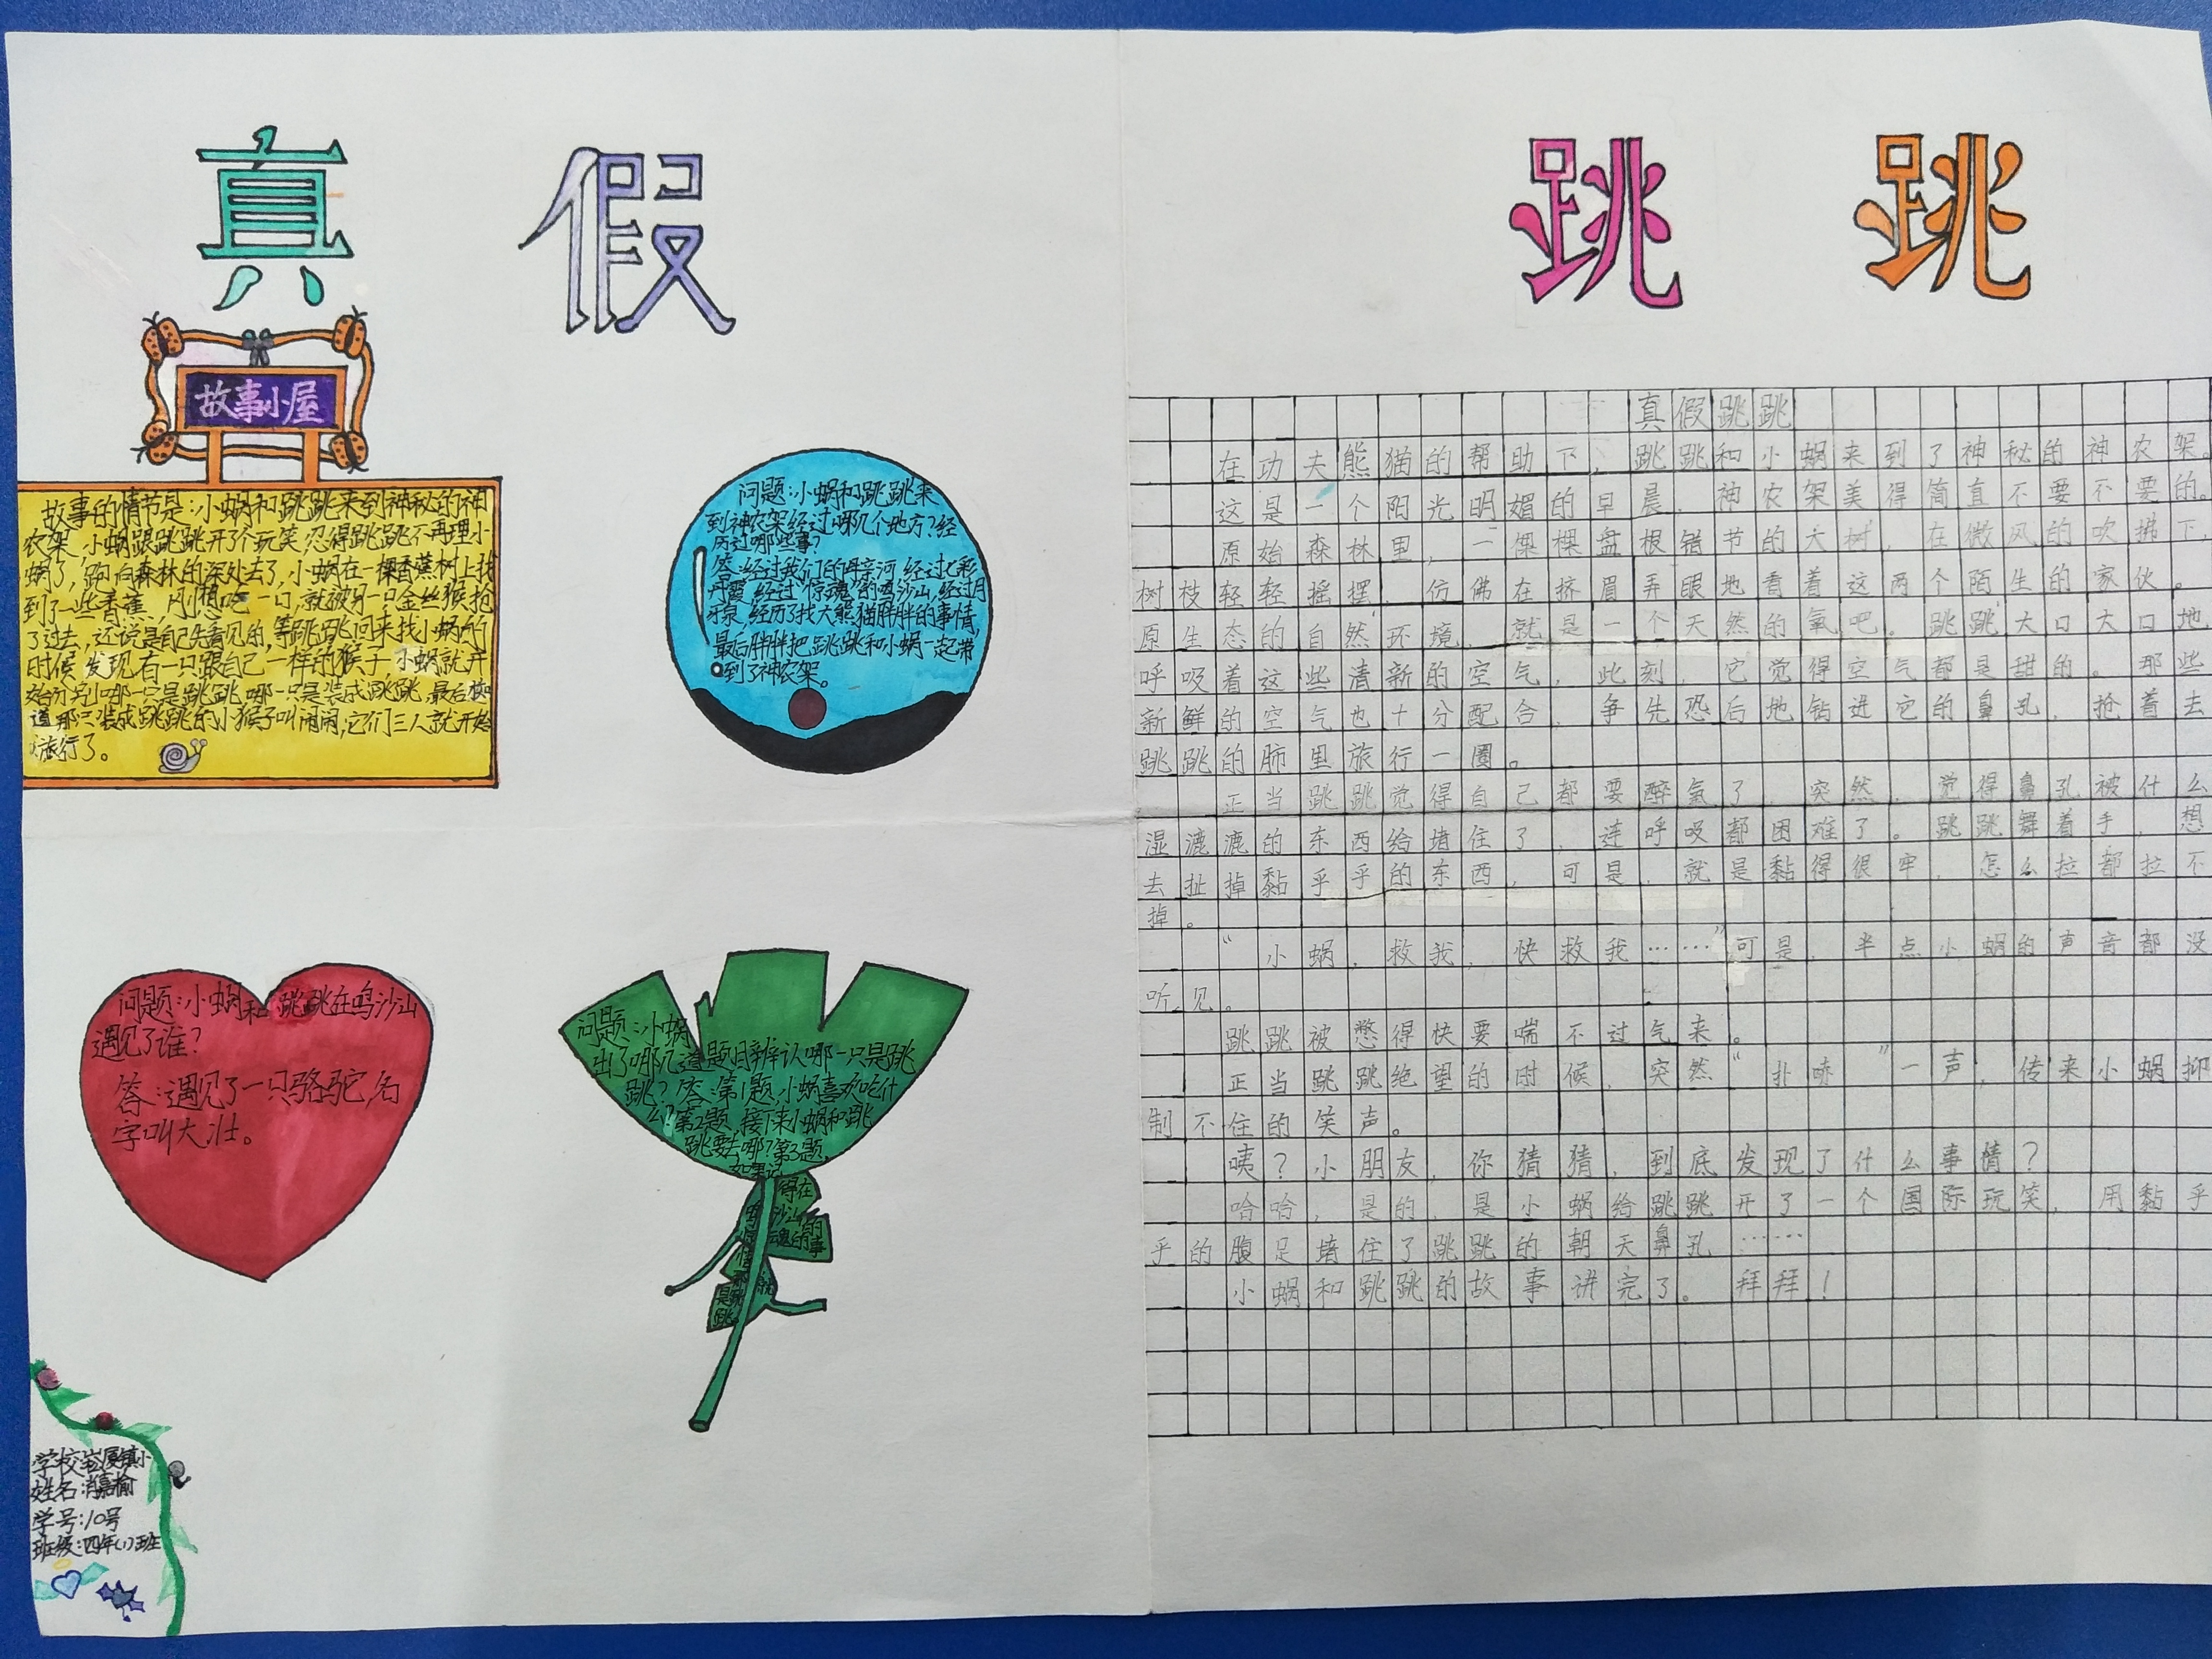 真假跳跳
故事小屋
故事的情节是:小蜗和跳跳来到神秘的神
农架,小蜗跟跳跳开了个玩笑,忍得跳跳不再理小
蜗了,跑向森林的深处去了,小蜗在一棵香蕉树上找
到了一些香蕉,刚想吃一口,就被另一只金丝猴抢
了过去,还说是自己先看见的,等跳跳回来找小蜗的
时候发现有一只跟自己一样的猴子,小蜗就开
始分别哪一只是跳跳,哪一只是装成跳跳,最后
道那只装成跳跳的小猴子叫闹闹,它们三人就开始
旅行了。
问题:小蜗和跳跳来
到神农架经过哪几个地方?经
历过哪些事?
答:经过我们的母亲河,经过七彩
丹霞,经过“惊魂”的鸣沙山,经过月
牙泉,经历了找大熊猫胖胖的事情,
最后胖胖把跳跳和小蜗一起带
到了神农架。
问题:小蜗和跳跳在鸣沙山
遇见了谁?
答:遇见了一只骆驼,名
字叫大壮。
问题:小蜗
出了哪几道题目辨认哪一只是跳
跳?答:第1题,小蜗喜欢吃什
么?第2题,接下来小蜗和跳
跳要去哪?第3题,
如果记
得在
沙山
魂的事
学校:崧厦镇小
姓名:嘉榆
学号:10号
班级:四年(1)班
真假跳跳
在功夫熊猫的帮助下,跳跳和小蜗来到了神秘的神农架。
这是一个阳光明媚的早晨,神农架美得简直不要不要的。
原始森林里,一棵棵盘根错节的大树,在微风的吹拂下,
树枝轻轻摇摆,仿佛在挤眉弄眼地看着这两个陌生的家伙。
原生态的自然环境,就是一个天然的氧吧。跳跳大口大口地
呼吸着这些清新的空气,此刻,它觉得空气都是甜的。那些
新鲜的空气也十分配合,争先恐后地钻进它的鼻孔,抢着去
跳跳的肺里旅行一圈。
正当跳跳觉得自己都要醉氧了,突然,觉得鼻孔被什么
湿漉漉的东西给堵住了,连呼吸都困难了。跳跳舞着手,想
去扯掉黏乎乎的东西,可是,就是黏得很牢,怎么拉都拉不
掉。
“小蜗,救我,快救我……”可是,半点小蜗的声音都没
听见。
跳跳被憋得快要喘不过气来。
正当跳跳绝望的时候,突然“扑哧”一声,传来小蜗抑
制不住的笑声。
咦?小朋友,你猜猜,到底发现了什么事情?
哈哈,是的,是小蜗给跳跳开了一个国际玩笑,用黏乎
乎的腹足堵住了跳跳的朝天鼻孔……
小蜗和跳跳的故事讲完了。拜拜!